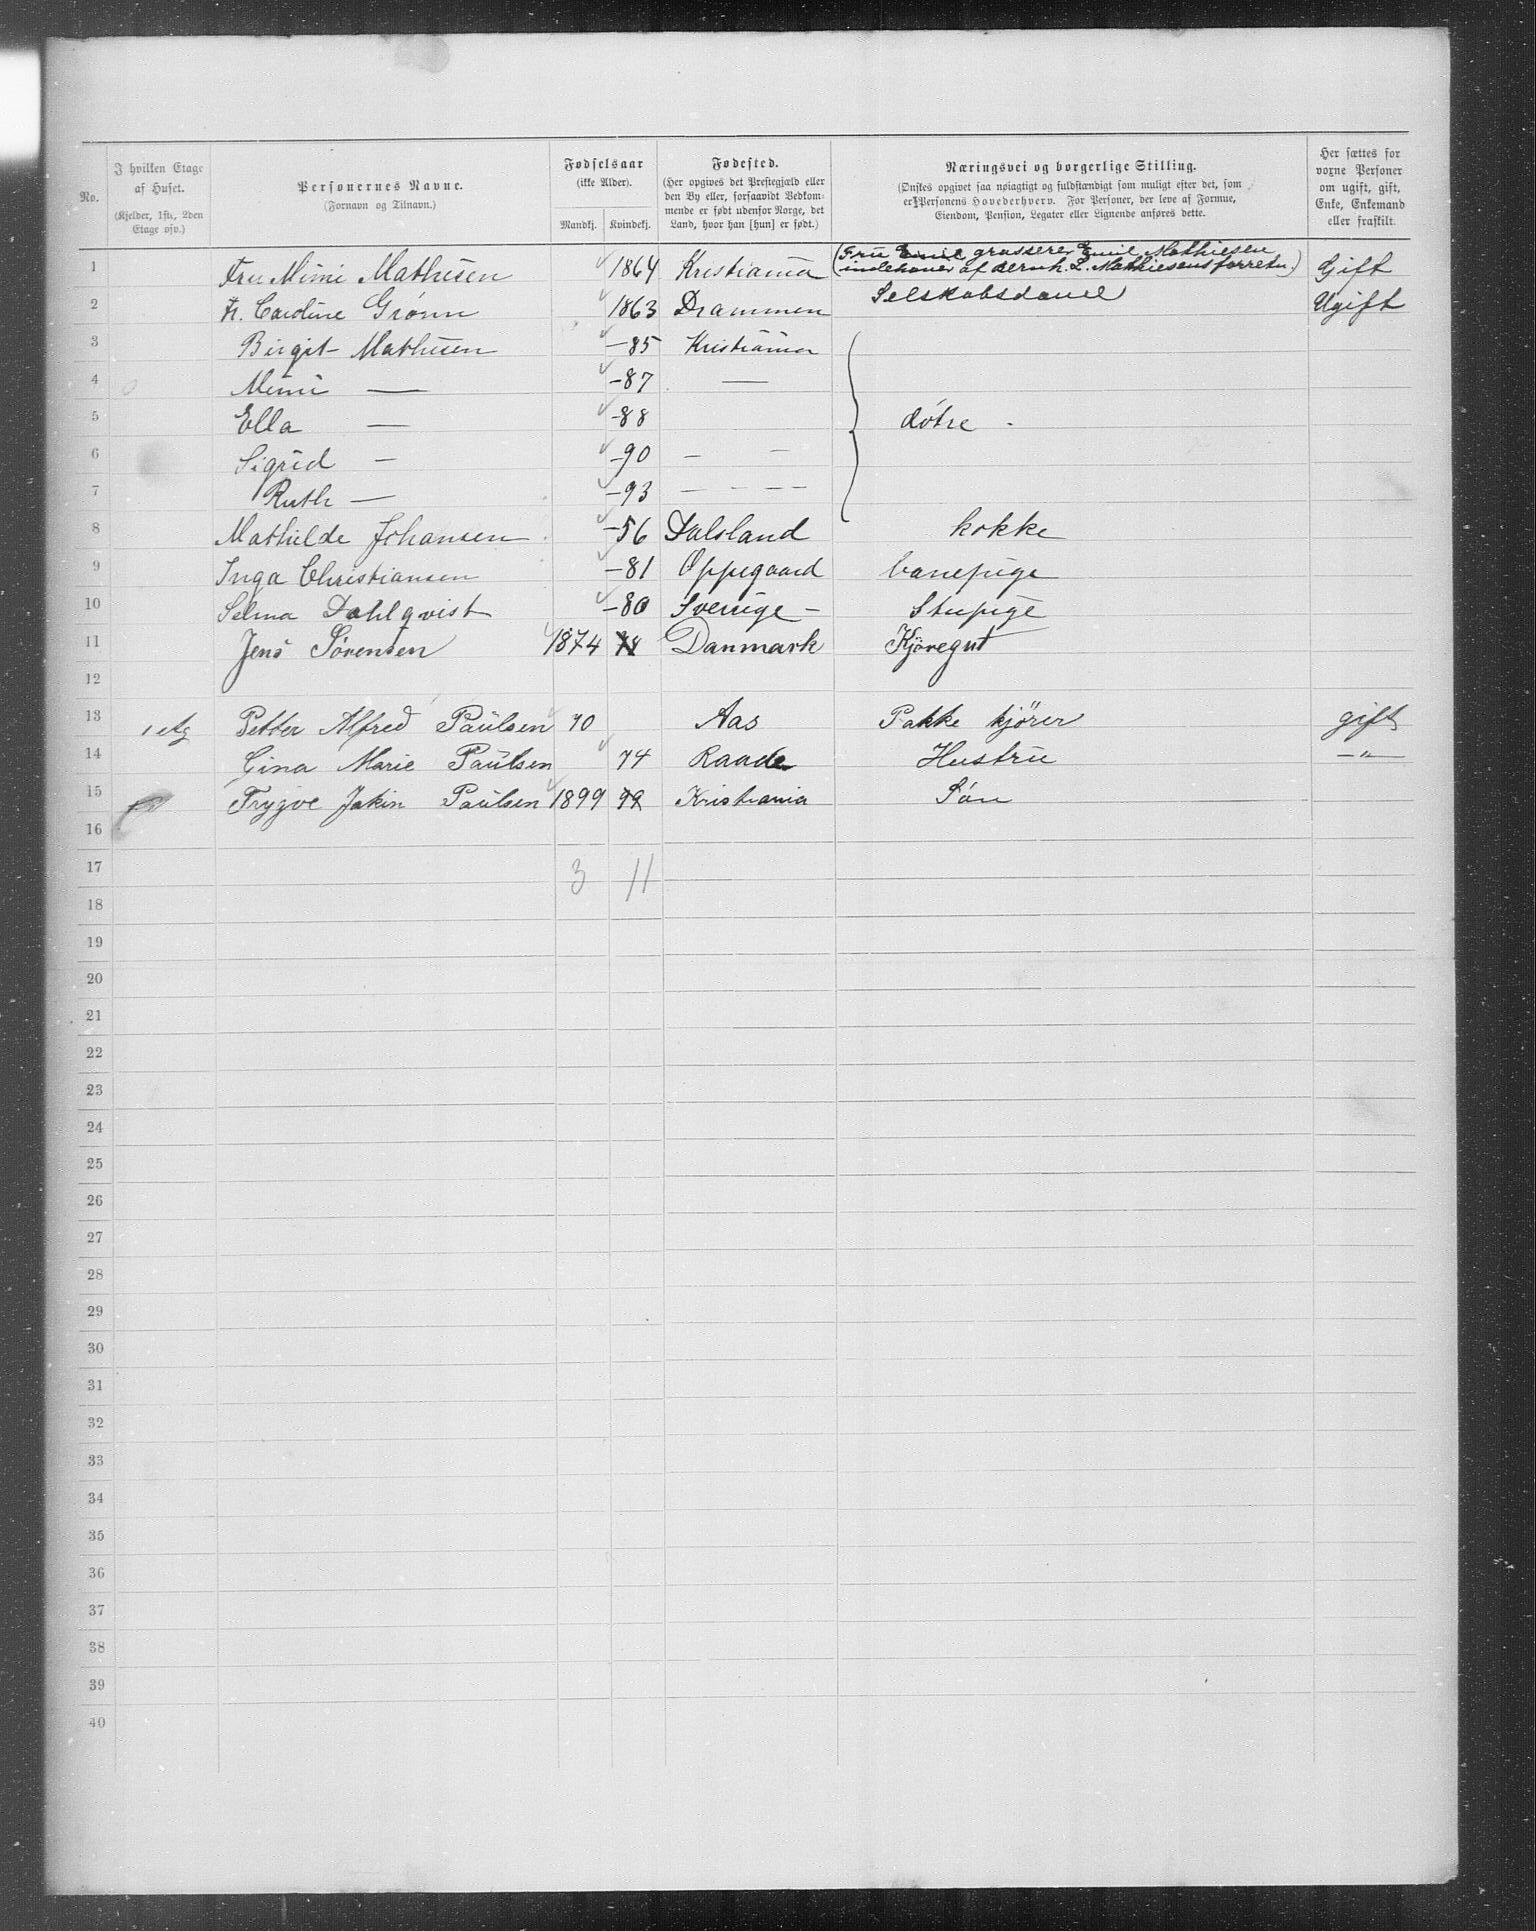 No.
I hvilken Etage af Huset.
(Kjelder, 1ste, 2den Etage osv.)
Personernes Navne.
(Fornavn og Tilnavn.)
Fødselsaar
(ikke Alder).
Mandkj. Kvindekj.
Fødested.
(Her opgives det Prestegjæld eller
den By eller, forsaavidt Vedkom-
mende er født udenfor Norge, det
Land, hvor han [hun] er født.)
Næringsvei og borgerlige Stilling.
(Ønskes opgivet saa nøiagtigt og fuldstændigt som muligt efter det, som
er Personens Hovederhverv. For Personer, der leve af Formue,
Eiendom, Pension, Legater eller Lignende anføres dette.
Her sættes for
vorne Personer
om ugift, gift,
Enke, Enkemand
eller fraskilt.
1 Fru Mimi Mathiesen 1864 Kristiania (Fru Emil grosserer Emil Mathiesen
indehaver af Bernh. L. Mathiesens forretn.) Gift
2 Fr. Caroline Grønn 1863 Drammen Selskabsdame Ugift
3 Birgit Mathiesen -85 Kristiania
4 Mimi — -87 —
5 Ella — -88 døtre
6 Sigrid — -90 — —
7 Ruth — -93 — — — —
8 Mathilde Johansen -56 Dalsland kokke
9 Inga Christiansen -81 Oppegaard barnepige
10 Selma Dahlqvist -80 Sverige - Stupige
11 Jens Sørensen 1874 74 Danmark Kjøregut
12
13 1 etg Petter Alfred Paulsen 70 Aas Pakke kjører gift
14 Gina Marie Paulsen 74 Raade Hustru —"—
15 Trygve Jakin Paulsen 1899 99 Kristiania Søn
16
17 3 11
18
19
20
21
22
23
24
25
26
27
28
29
30
31
32
33
34
35
36
37
38
39
40